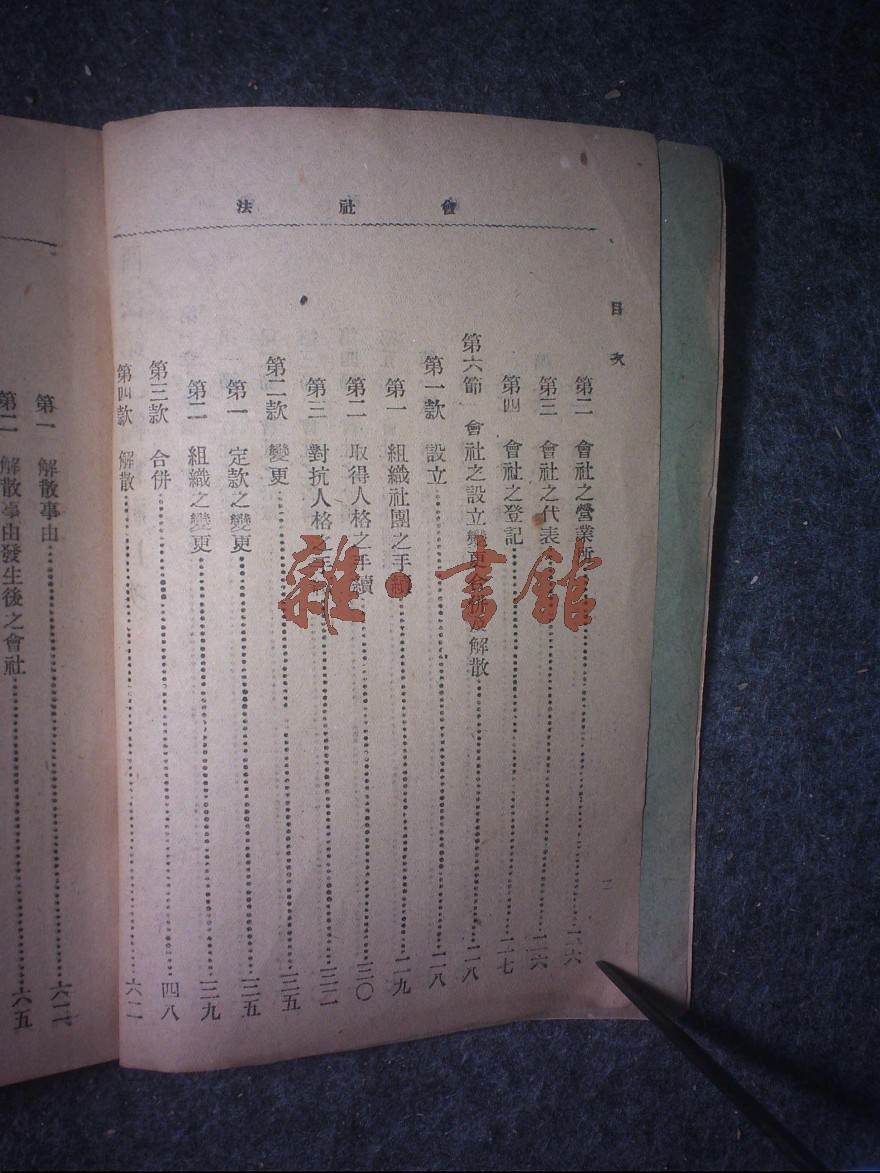 會社法
目次
二
第二 會社之營業所……二六
第三 會社之代表……二六
第四 會社之登記……二七
第六節 會社之設立變更合併及解散……二八
第一款 設立……二八
第一 組織社團之手續……二九
第二 取得人格之手續……三〇
第三 對抗人格之手……三二
第二款 變更……三五
第一 定款之變更……三五
第二 組織之變更……三九
第三款 合併……四八
第四款 解散……六二
第一 解散事由……六二
第二 解散事由發生後之會社……六五
雜·書館